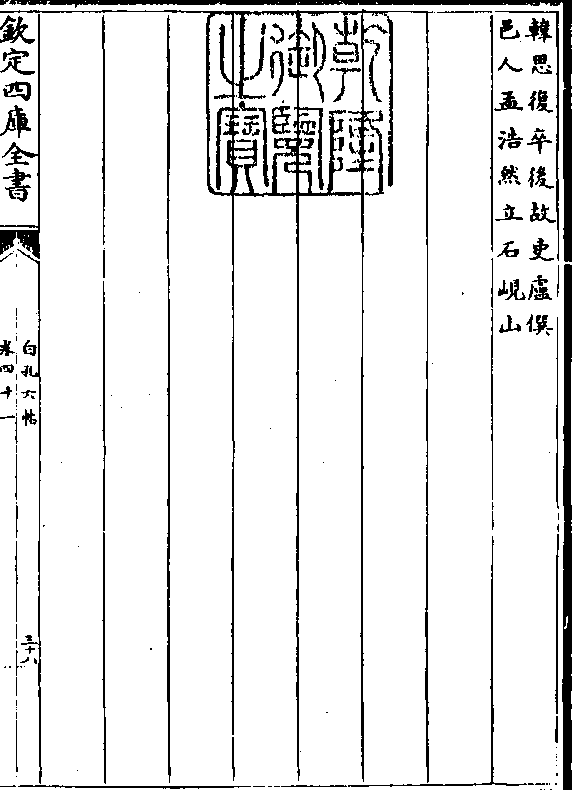 韓思復卒後故吏盧僎
邑人孟浩然立石峴山
乾隆
御覽
之寶
欽定四庫全書
白孔六帖
卷四十一
三十八